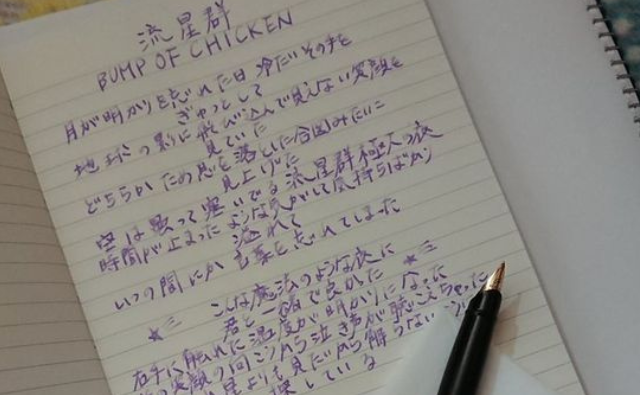 流星群
BUMP OF CHICKEN
月が明かりを忘れた日 冷たいその手を
ぎゅっとして
地球の影に飛び込んで見えない笑顔を
見ていた
どちらかため息を落とした合図みたいに
見上げた
空は歌って塞いでる 流星群 極大の夜
時間が止まったような気がして 気持ちばかり
溢れて
いつの間にか言葉を忘れてしまった
こんな魔法のような夜に
君と一緒で良かった
右手に触れた温度が明かりになった
の笑顔の向こうから泣き声が聴こえちゃった
星よりも見だから解らない
探している